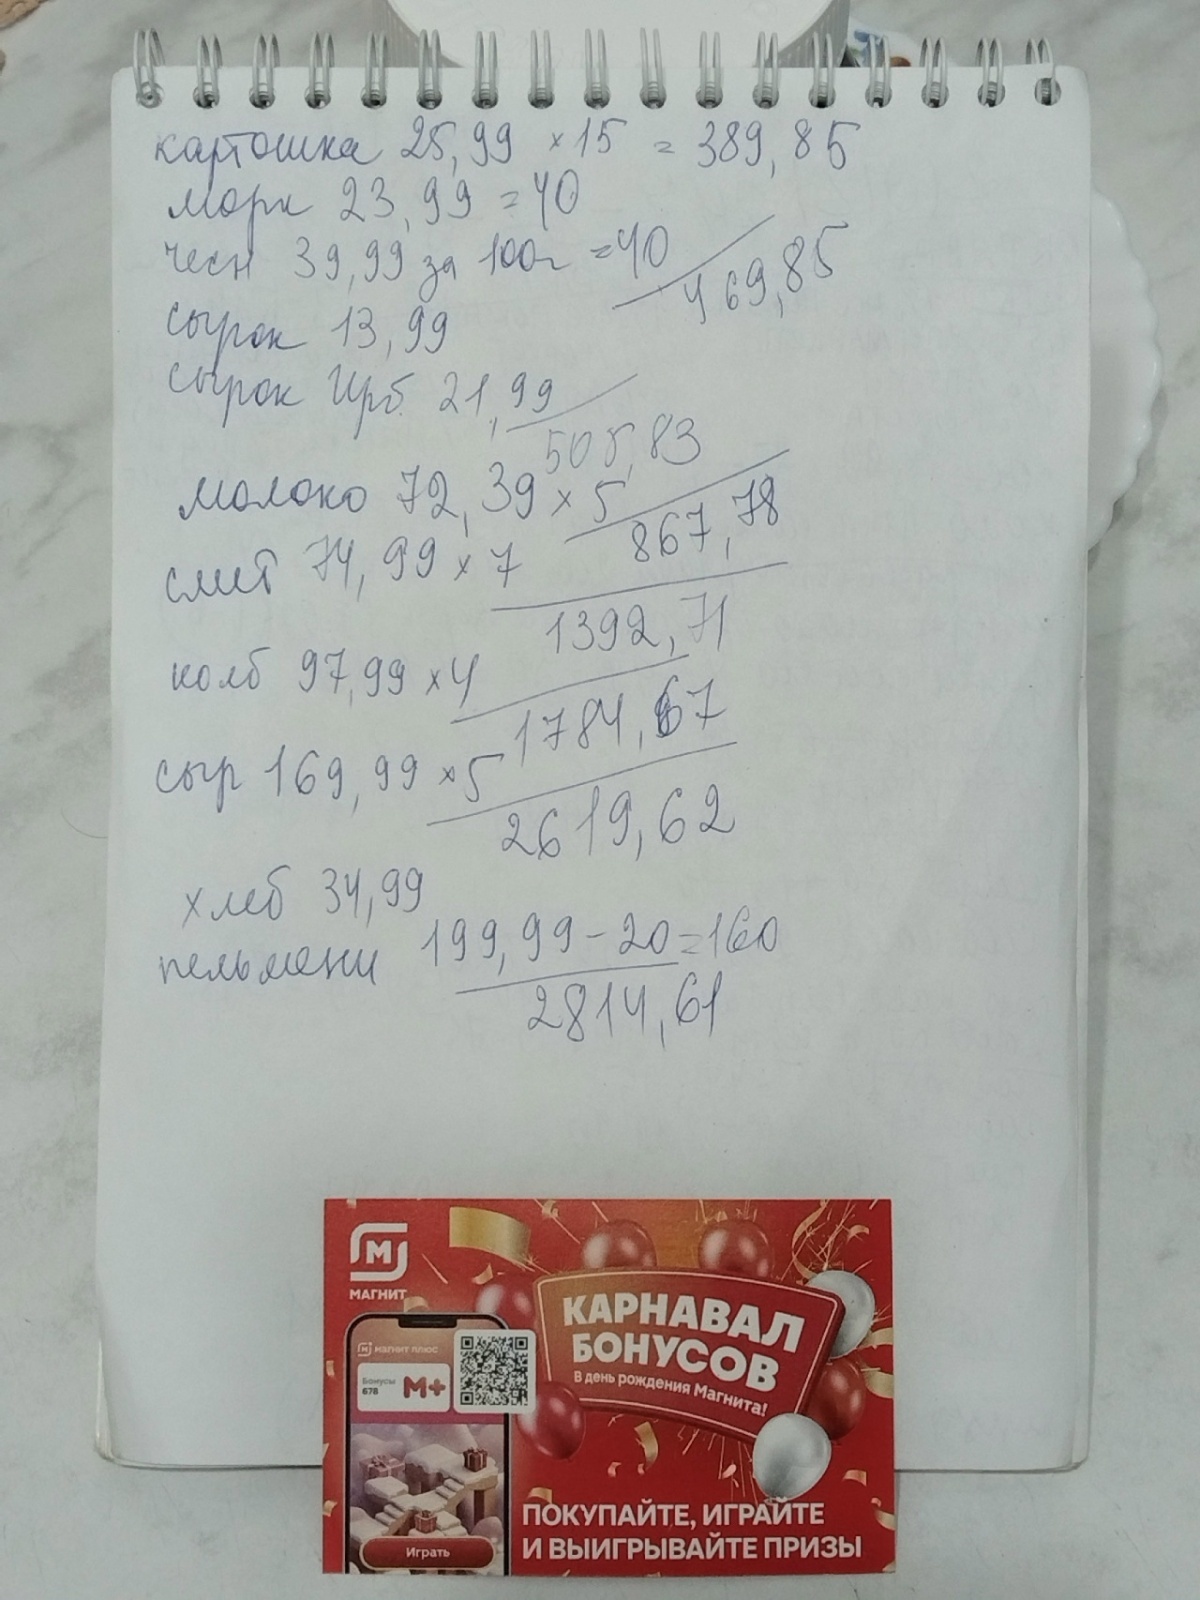 картошка 25,99 × 15 = 389,85
морк 23,99 = 40
чесн 39,99 за 100г = 40
469,85
сырок 13,99
сырок 21,99
505,83
молоко 72,39 × 5
867,78
смет 74,99 × 7
1392,71
колб 97,99 × 4
1784,67
сыр 169,99 × 5
2619,62
хлеб 34,99
пельмени 199,99 - 20 = 160
2814,61
МАГНИТ
КАРНАВАЛ
БОНУСОВ
В день рождения Магнита!
МАГНИТ ПЛЮС
Бонусы
678
М+
Играть
ПОКУПАЙТЕ, ИГРАЙТЕ
И ВЫИГРЫВАЙТЕ ПРИЗЫ